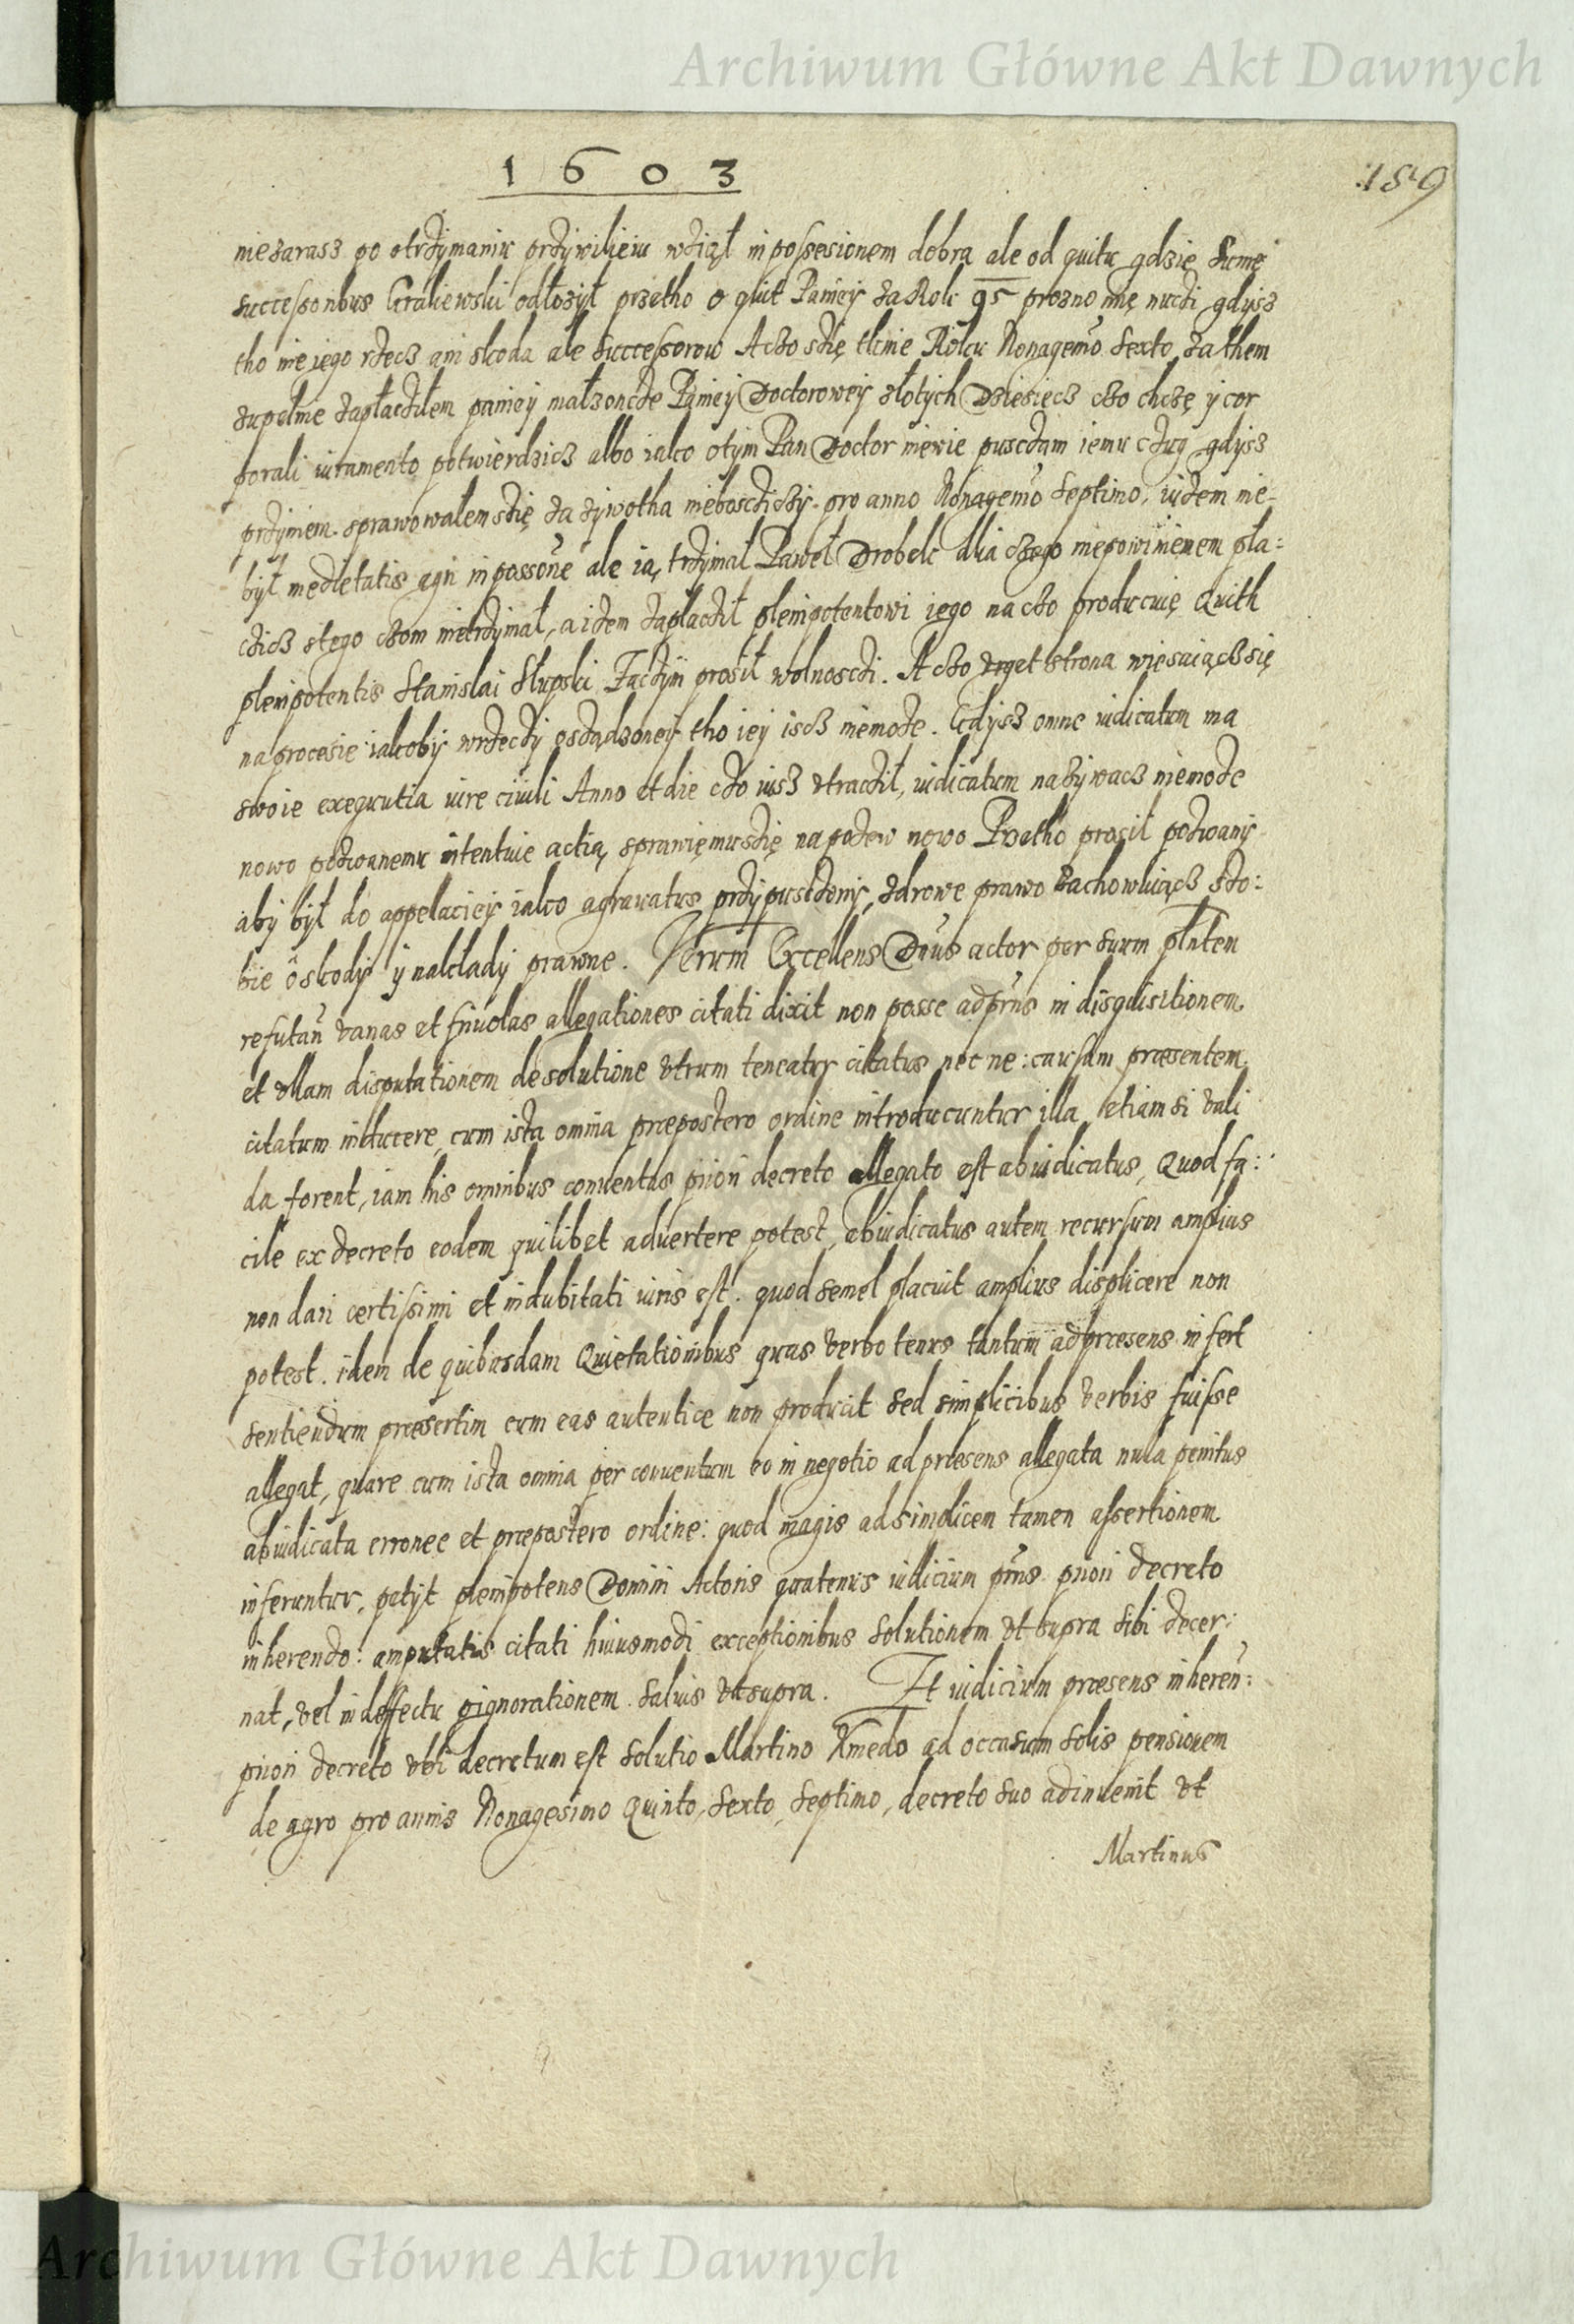 Archiwum Główne Akt Dawnych
1603
159
niezarasz po otrzymaniu przywilieiu wziął in possesionem dobra ale od quitu gdzie sumę
successoribus Graliewski odłożył przetho o quit Paniey za Rok 95 prozno mię nuczi gdysz
tho nie iego rzecz ani skoda ale successorow A czo szię tknie Roku Nonagemo Sexto, za them
zupełnie zapłacziłem paniey małzoncze Paniey Doctorowey złotych Dziesięcz czo chczę y cor
porali iuramento potwierdzicz albo iako otym Pan Doctor niewie pusczam iemu czug gdysz
przyniem sprawowałem szię za zywotha nieboscziczy. pro anno Nonagemo Septimo, iuzem nie-
był medietatis agri in possone ale ią trzymał Paweł Drobek dlia czego niepowinienem pła:
czicz stego czom nietrzymał, a izem zapłacził plenipotentowi iego na czo producuię Quith
plenipotentis Stanislai Słupski Zaczym prosił wolnosczi. A czo urget strona wiesaiącz się
na procesie iakoby wrzeczy osządzoney tho iey iscz niemoże. Gdysz omne iudicatum ma
swoie exequutia iure ciuili Anno et die czo iusz utracził, iudicatum nazywacz niemoże
nowo pozwanemu intentuie actią, sprawięmuszię na pozew nowo Przetho prosił pozwany
aby był do appelaciey iako agrauatus przypusczony, zdrowe prawo zachowuiącz szo:
bie o skody y nakłady prawne. Verum Excellens Dnus actor per suum plntem
refutan vanas et friuolas allegationes citati dixit non posse ad prns in disquisitionem
et ullam disputationem de solutione utrum teneatur citatus nec ne: causam præsentem
citatum inducere, cum ista omnia præpostero ordine introducuntur illa, etiam si vali
da forent, iam his omnibus conuentus priori decreto allegato est abiudicatus, Quod fa:
cile ex decreto eodem quilibet aduertere potest, abiudicatus autem recursum amplius
non dari certissimi et indubitati iuris est. quod semel placuit amplius displicere non
potest. idem de quibusdam Quietationibus quas verbo tenus tantum ad præsens infert
sentiendum præsertim cum eas autentice non producit sed simplicibus verbis fuisse
allegat, quare cum ista omnia per conuentum eo in negotio ad præsens allegata nula penitus
abiudicata erronee et præpostero ordine: quod magis adsimidicem tamen assertionem
inferuntur, petyt plenipotens Domini Actoris quatenus iudicium prns priori decreto
inherendo: amputatis citati huiusmodi exceptionibus solutionem ut supra sibi decer:
nat, vel in deffectu pignorationem. saluis ut supra. Et iudicium præsens inheren:
priori decreto ubi decretum est solutio Martino Kmedo ad occasum solis pensionem
de agro pro annis Nonagesimo Quinto, Sexto, Septimo, decreto suo adinuenit ut
Martinus
Archiwum Główne Akt Dawnych